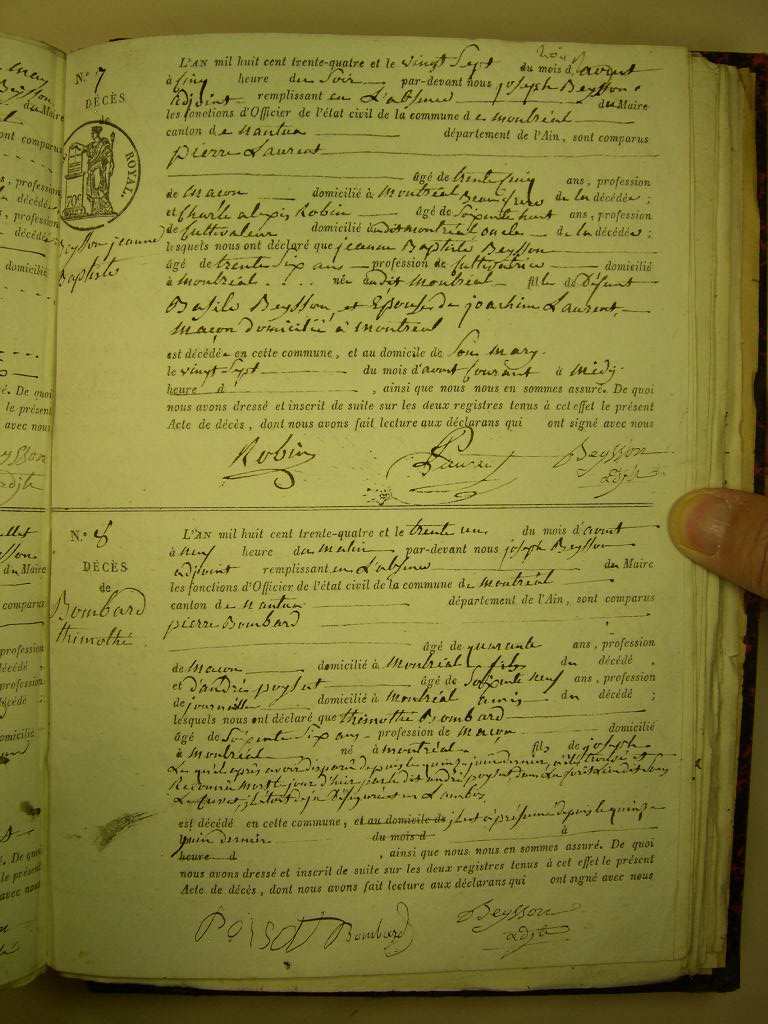 N.° 7
DÉCÈS
de
ROYAL
Beysson jeanne
Baptiste
L'AN mil huit cent trente-quatre et le vingt sept du mois d'avout
à cinq heure du soir par-devant nous joseph Beysson
adjoint remplissant en l'absence du Maire
les fonctions d'Officier de l'état civil de la commune de montréal
canton de nantua département de l'Ain, sont comparus
pierre Laurent
âgé de trente cinq ans, profession
de maçon domicilié à Montréal Beau frere de la décédée ;
et Charle alexis Robin âgé de soixente huit ans, profession
de cultivateur domicilié audit montréal oncle de la décédée ;
lesquels nous ont déclaré que jeanne Baptiste Beysson
âgé de trente six ans profession de cultivatrice domicilié
à montréal née audit montréal fille de défunt
Basile Beysson, et Epouse de joachim Laurent,
maçon domicilié à montréal
est décédée en cette commune, et au domicile de son mary
le vingt sept du mois d'avout courant à midy
heure d , ainsi que nous nous en sommes assuré. De quoi
nous avons dressé et inscrit de suite sur les deux registres tenus à cet effet le présent
Acte de décès, dont nous avons fait lecture aux déclarans qui ont signé avec nous
Robin Laurent Beysson
adjt
N.° 8
DÉCÈS
de
Bombard
thimothé
L'AN mil huit cent trente-quatre et le trente un du mois d'avout
à neuf heure du matin par-devant nous joseph Beysson
adjoint remplissant en l'absence du Maire
les fonctions d'Officier de l'état civil de la commune de montréal
canton de nantua département de l'Ain, sont comparus
pierre Bombard
âgé de quarente ans, profession
de maçon domicilié à Montréal fils du décédé ,
et d'andré poysat âgé de soixente neuf ans, profession
de journallier domicilié à Montréal amis du décédé ;
lesquels nous ont déclaré que thimothé Bombard
âgé de soixente six ans profession de maçon domicilié
à montréal né à montréal fils de joseph
Le quel après avoir disparu depuis le quinze juin dernier a été trouvé et
Reconnu mort le jour d'hier par le dit andré poysat dans la forêt
est décédé en cette commune, et au domicile de il est à présumé depuis le quinze
juin dernier du mois d à
heure d , ainsi que nous nous en sommes assuré. De quoi
nous avons dressé et inscrit de suite sur les deux registres tenus à cet effet le présent
Acte de décès, dont nous avons fait lecture aux déclarans qui ont signé avec nous
POISAT Bombard Beysson
adjt